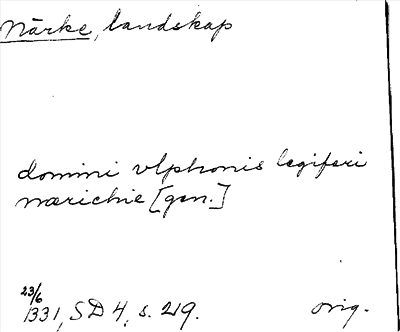 Närke, landskap
domini vlphonis legiferi
nærichie [gen.]
23/6
1331, SD 4, s. 219. orig.